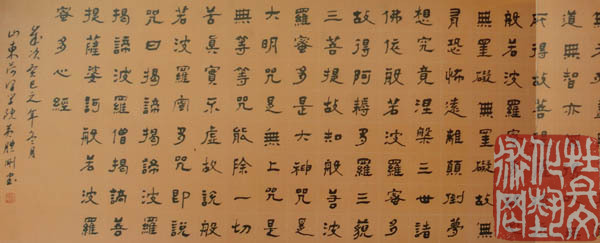 道無智亦
所得故菩
般若波羅
無罣礙無罣礙故無
有恐怖遠離顛倒夢
想究竟涅槃三世諸
佛依般若波羅蜜多
故得阿耨多羅三藐
三菩提故知般若波
羅蜜多是大神咒是
大明咒是無上咒是
無等等咒能除一切
苦真實不虛故說般
若波羅蜜多咒即說
咒曰揭諦揭諦波羅
揭諦波羅僧揭諦菩
提薩婆訶般若波羅
蜜多心經
歲次癸巳年冬月
山東
文化藝術网